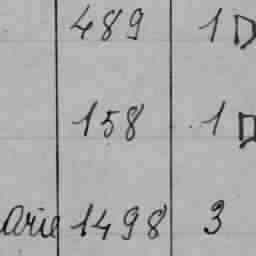 489 1 D
158 1 D
arie 1498 3